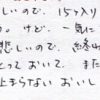 しいので、15ヶ入り
。けど、一気に
悲しいので、
とっておいて、また
止まらない おいし